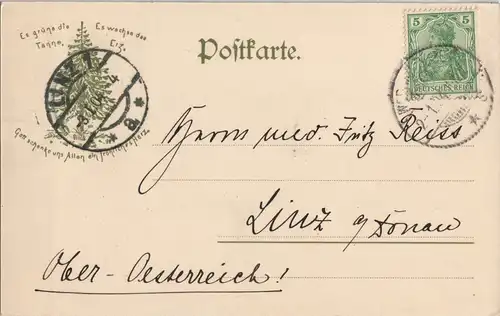 Es grüne die Tanne, Es wachse das Erz,
Gott schenke uns Allen ein fröhliches Herz
Postkarte.
5 5
DEUTSCHES REICH
LINZ 1
a
Herrn med. Fritz Reiss
Linz a/Donau
Ober-Oesterreich!